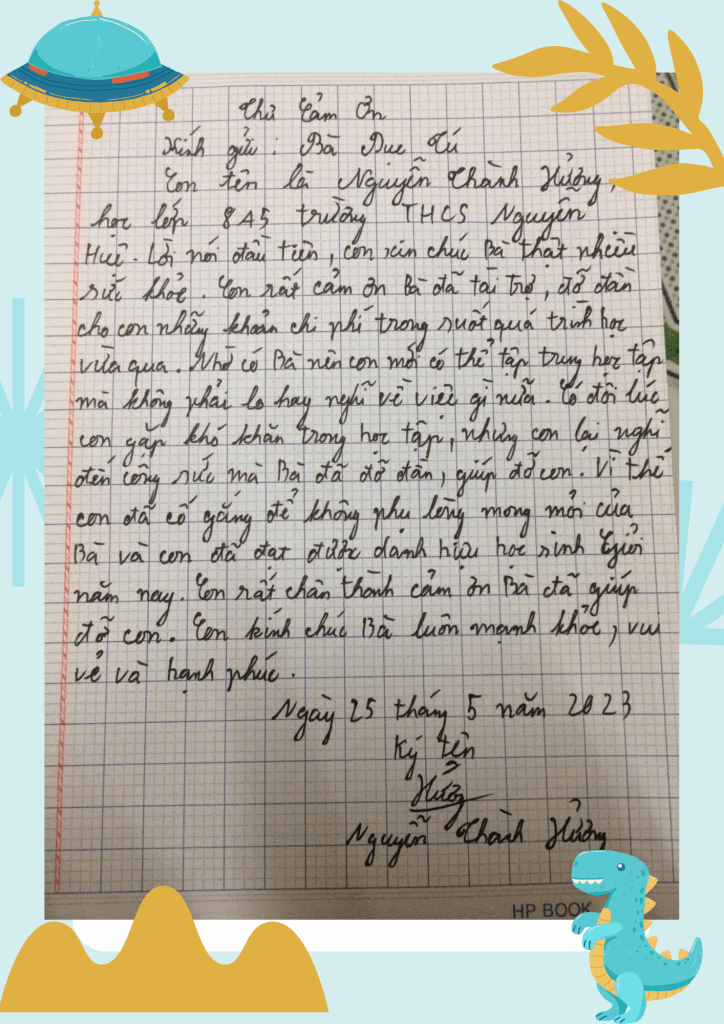 Thư Cảm Ơn
Kính gửi : Bà Duc Tú
Con tên là Nguyễn Thành Hưởng,
học lớp 8A5 trường THCS Nguyễn
Huệ. Lời nói đầu tiên, con xin chúc Bà thật nhiều
sức khoẻ. Con rất cảm ơn Bà đã tài trợ, đỡ đần
cho con những khoản chi phí trong suốt quá trình học
vừa qua. Nhờ có Bà nên con mới có thể tập trung học tập
mà không phải lo hay nghĩ về việc gì nữa. Có đôi lúc
con gặp khó khăn trong học tập, nhưng con lại nghĩ
đến công sức mà Bà đã đỡ đần, giúp đỡ con. Vì thế
con đã cố gắng để không phụ lòng mong mỏi của
Bà và con đã đạt được danh hiệu học sinh Giỏi
năm nay. Con rất chân thành cảm ơn Bà đã giúp
đỡ con. Con kính chúc Bà luôn mạnh khoẻ, vui
vẻ và hạnh phúc.
Ngày 25 tháng 5 năm 2023
Ký tên
Hưởng
Nguyễn Thành Hưởng
HP BOOK